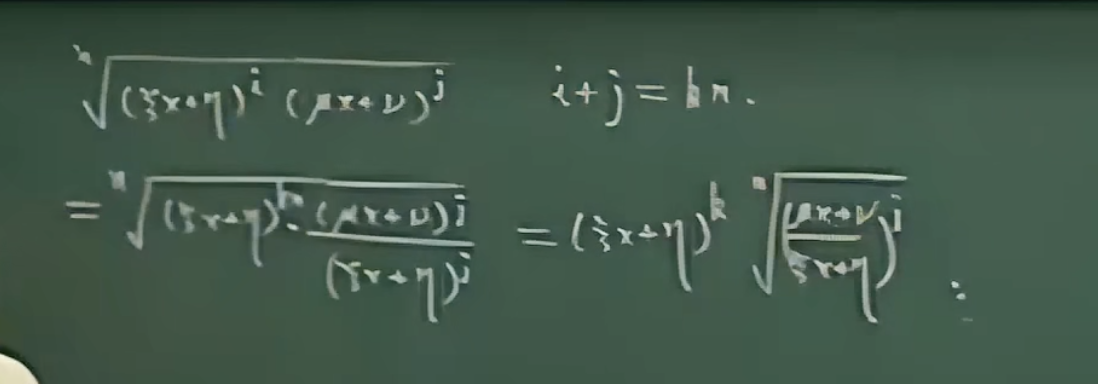 $\sqrt[n]{(\xi x+\eta)^i (\mu x+\nu)^j}$ $i+j=kn.$
$=\sqrt[n]{(\xi x+\eta)^{kn} \cdot \frac{(\mu x+\nu)^j}{(\xi x+\eta)^j}} = (\xi x+\eta)^k \sqrt[n]{\left(\frac{\mu x+\nu}{\xi x+\eta}\right)^j}$